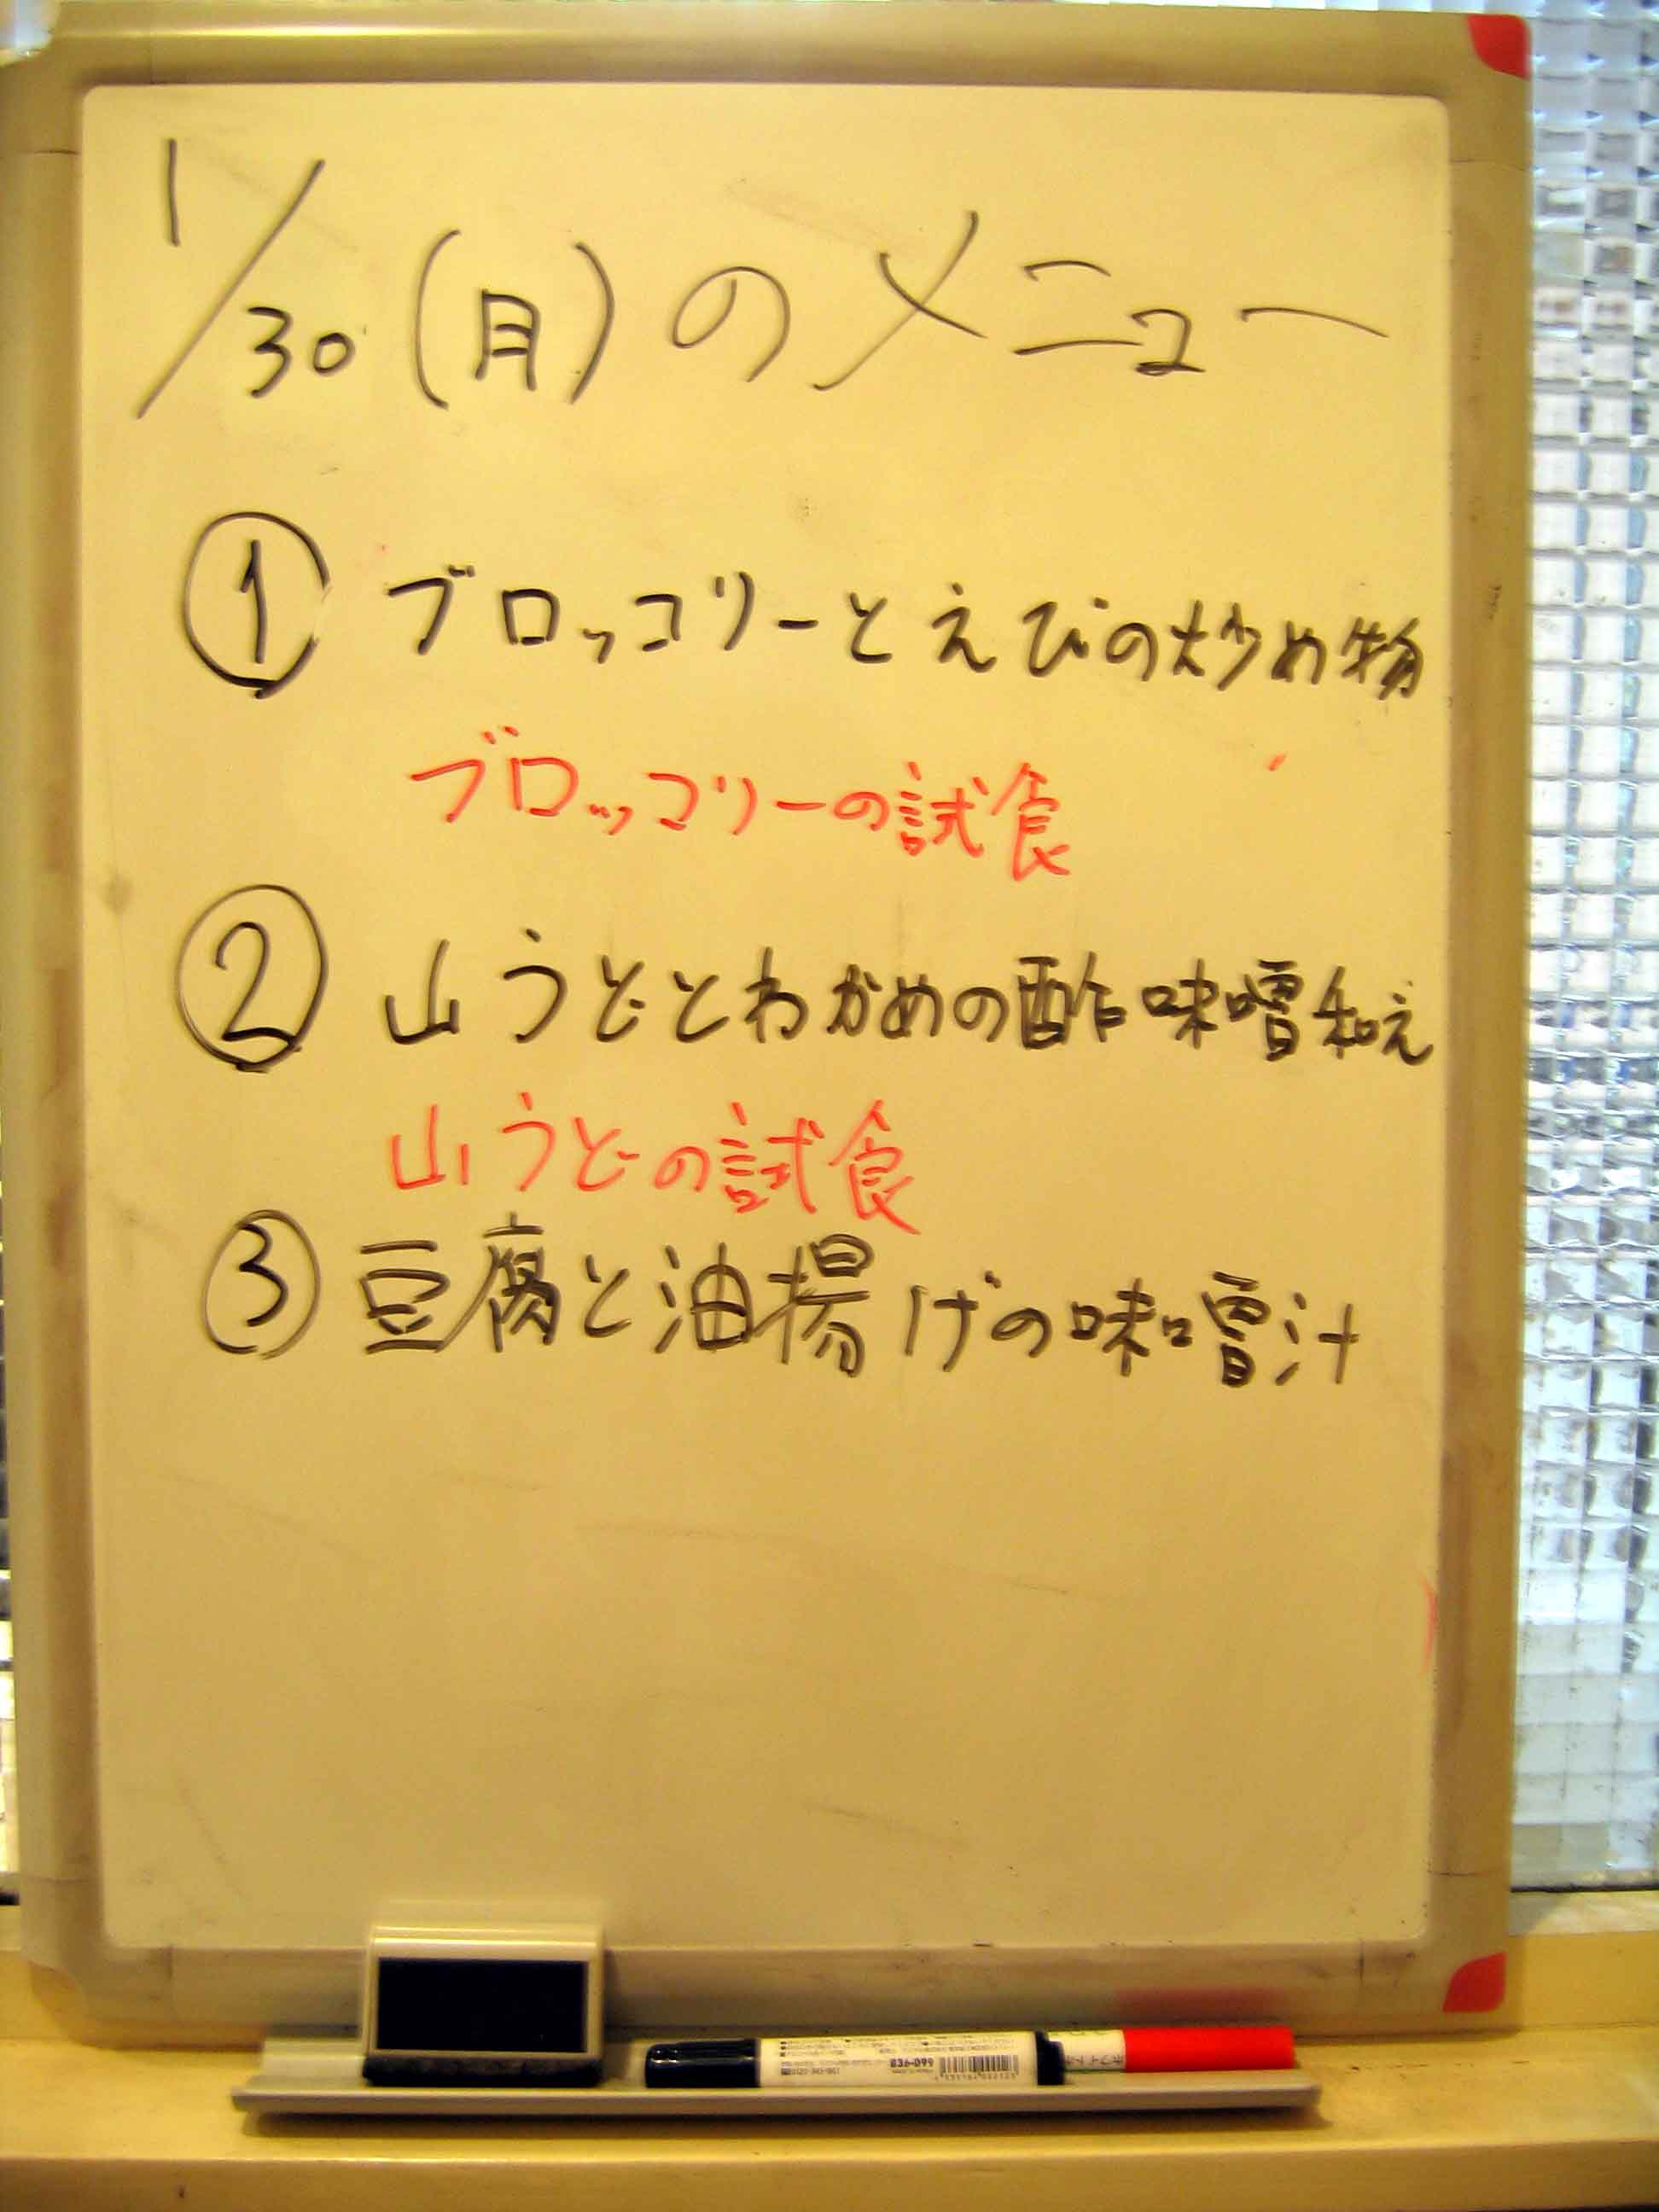 1/30(月)のメニュー
① ブロッコリーとえびの炒め物
ブロッコリーの試食
② 山うどとわかめの酢味噌和え
山うどの試食
③ 豆腐と油揚げの味噌汁
836-099